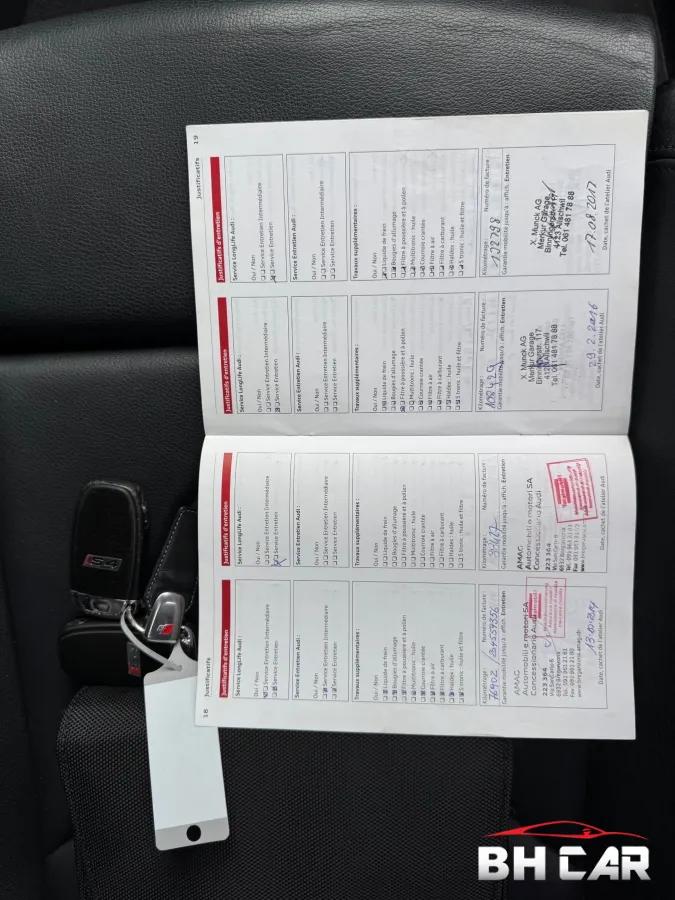 18
Justificatifs
Justificatifs d'entretien
Service LongLife Audi :
Oui / Non
Service Entretien Intermédiaire
Service Entretien
Service Entretien Audi :
Oui / Non
Service Entretien Intermédiaire
Service Entretien
Travaux supplémentaires :
Oui / Non
Liquide de frein
Bougies d'allumage
Filtre à poussière et à pollen
Multitronic : huile
Courroie crantée
Filtre à air
Filtre à carburant
Haldex : huile
S tronic : huile et filtre
Kilométrage :
Numéro de facture :
76902
Garantie mobilité jusqu'à : affich. Entretien
AMAG
Automobili e motori SA
Concessionario Audi
223 364
Date, cachet de l'atelier Audi
Justificatifs d'entretien
Service LongLife Audi :
Oui / Non
Service Entretien Intermédiaire
Service Entretien
Service Entretien Audi :
Oui / Non
Service Entretien Intermédiaire
Service Entretien
Travaux supplémentaires :
Oui / Non
Liquide de frein
Bougies d'allumage
Filtre à poussière et à pollen
Multitronic : huile
Courroie crantée
Filtre à air
Filtre à carburant
Haldex : huile
S tronic : huile et filtre
Kilométrage :
Numéro de facture :
Garantie mobilité jusqu'à : affich. Entretien
AMAG
Automobili e motori SA
Concessionario Audi
223 364
Date, cachet de l'atelier Audi
Justificatifs
19
Justificatifs d'entretien
Service LongLife Audi :
Oui / Non
Service Entretien Intermédiaire
Service Entretien
Service Entretien Audi :
Oui / Non
Service Entretien Intermédiaire
Service Entretien
Travaux supplémentaires :
Oui / Non
Liquide de frein
Bougies d'allumage
Filtre à poussière et à pollen
Multitronic : huile
Courroie crantée
Filtre à air
Filtre à carburant
Haldex : huile
S tronic : huile et filtre
Kilométrage :
Numéro de facture :
Garantie mobilité jusqu'à : affich. Entretien
X. Munck AG
Merkur Garage
Binningerstr. 117
4123 Allschwil
Tel. 061 481 78 88
29.2.2016
Date, cachet de l'atelier Audi
Justificatifs d'entretien
Service LongLife Audi :
Oui / Non
Service Entretien Intermédiaire
Service Entretien
Service Entretien Audi :
Oui / Non
Service Entretien Intermédiaire
Service Entretien
Travaux supplémentaires :
Oui / Non
Liquide de frein
Bougies d'allumage
Filtre à poussière et à pollen
Multitronic : huile
Courroie crantée
Filtre à air
Filtre à carburant
Haldex : huile
S tronic : huile et filtre
Kilométrage :
Numéro de facture :
Garantie mobilité jusqu'à : affich. Entretien
X. Munck AG
Merkur Garage
Binningerstr. 117
4123 Allschwil
Tel. 061 481 78 88
17.08.2017
Date, cachet de l'atelier Audi
BH CAR